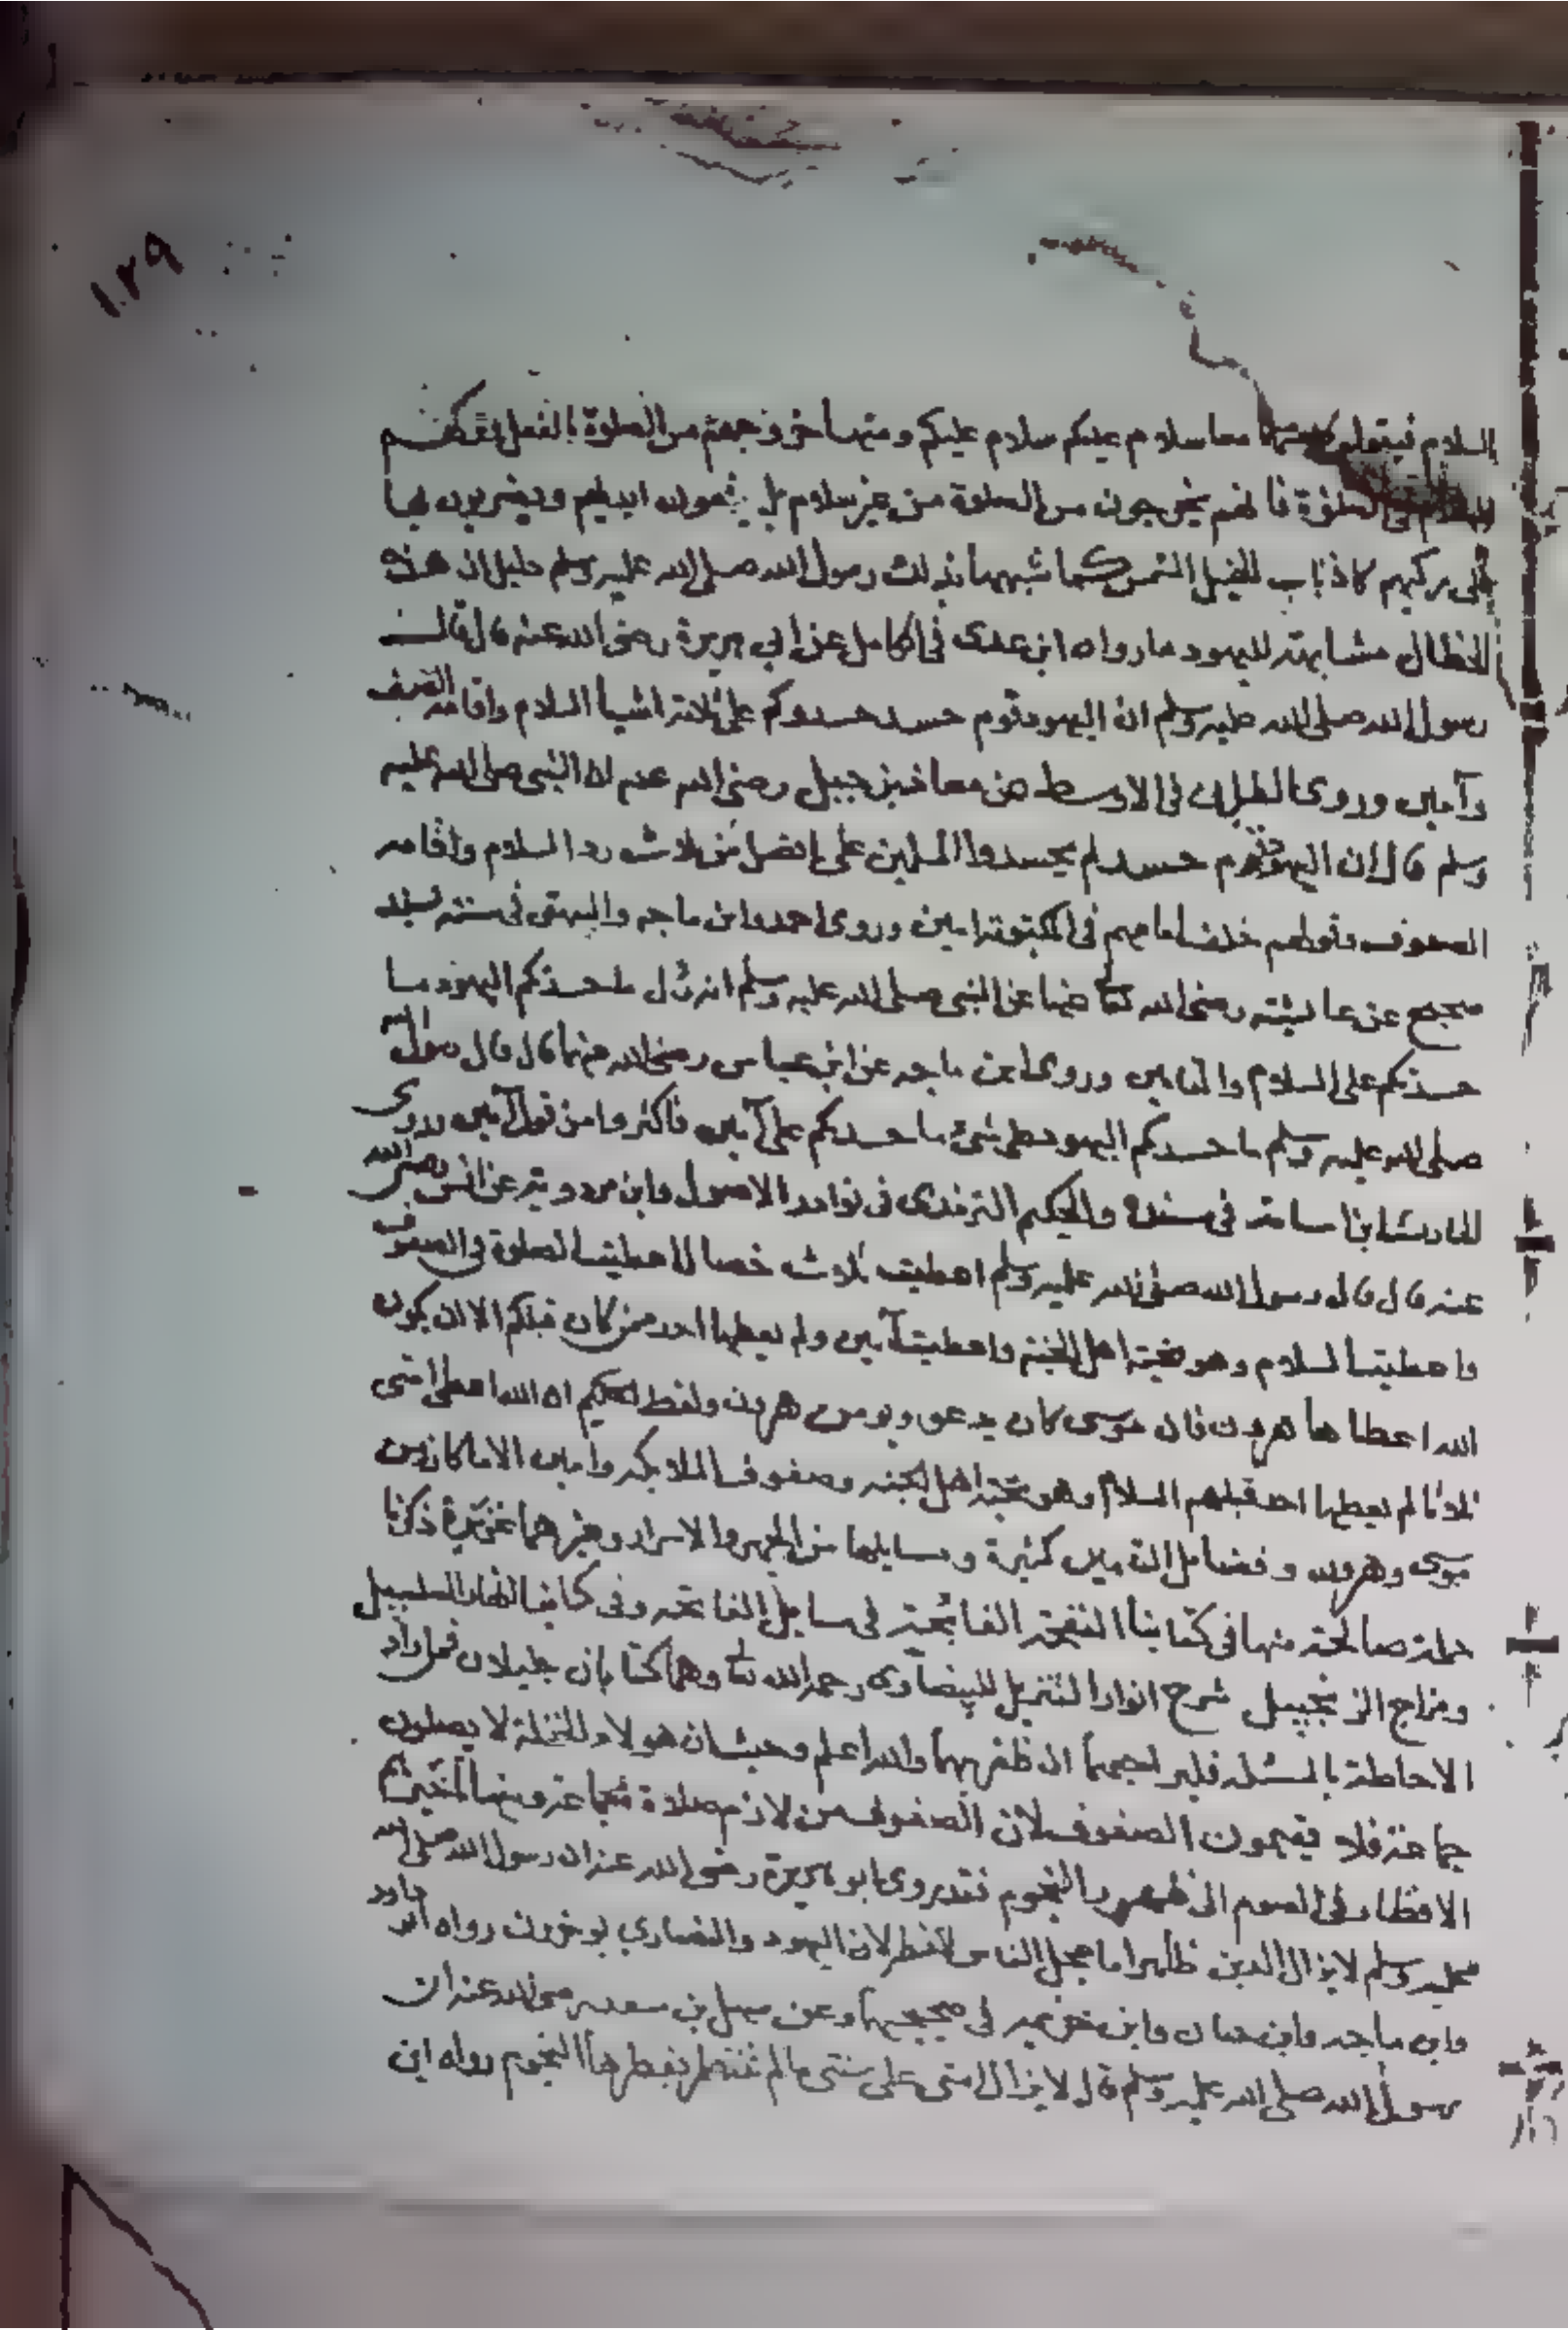 ١٢٩
السلام فيقولو معا سلام عليكم سلام عليكم ومنها خروجهم من الصلوة بالفعل
الصلوة فانهم يخرجون من الصلوة من غير سلام بل ايديهم ويضربون بها
على ركبهم كاذناب الخيل الشمس كما شبههما بذلك رسول الله صلى الله عليه وسلم دليل ان هذه
الخطال مشابهته لليهود ما رواه ابن عدى في الكامل عن ابي هريرة رضى الله عنه قال قال
رسول الله صلى الله عليه وسلم ان اليهود قوم حسد حسدوكم على ثلاثة اشيا السلام واقامه الصف
وآمين وروى الطبراني في الاوسط عن معاذ بن جبل رضى الله عنه ان النبي صلى الله عليه
وسلم قال ان اليهود قوم حسد لم يحسدوا المسلمين على افضل من ثلاث رد السلام واقامه
الصفوف وقولهم خلف امامهم في المكتوبة امين وروى احمد وابن ماجه والبيهقى في سننه بسند
صحيح عن عايشه رضى الله تعالى عنها عن النبي صلى الله عليه وسلم انه قال ما حسدتكم اليهود ما
حسدتكم على السلام والتامين وروى ابن ماجه عن ابن عباس رضى الله عنهما قال قال رسول الله
صلى الله عليه وسلم ما حسدتكم اليهود على شئ ما حسدتكم على آمين فاكثروا من قول آمين وروى
الحارث ابن اسامة في مسنده والحكيم الترمذى في نوادر الاصول وابن مردويه عن انس رضى الله
عنه قال قال رسول الله صلى الله عليه وسلم اعطيت ثلاث خصال اعطيت الصلوة في الصفوف
واعطيت السلام وهو تحية اهل الجنة واعطيت آمين ولم يعطها احد ممن كان قبلكم الا ان يكون
الله اعطاها هرون فان موسى كان يدعو ويومن هرون ولفظ الحكيم ان الله اعطى امتى
ثلاثا لم يعطها احد قبلهم السلام وهو تحية اهل الجنه وصفوف الملايكه وامين الا ما كان من
موسى وهرون وفضايل التامين كثيرة ومسايلها من الجهر والاسرار وغيرهما غزيرة ذكرنا
جملة صالحة منها في كتابنا النفحة الفاتحية في مسايل الفاتحه وفي كتابنا انهار السلسبيل
ومزاج الزنجبيل شرح انوار التنزيل للبيضاوى رحمه الله تعالى وهما كتابان جليلان فمن اراد
الاحاطة بالمسئله فليراجعهما ان ظفر بهما والله اعلم وحيث ان هولاء لا يصلون
جماعة فلا يقيمون الصفوف لان الصفوف من لازم صلاة الجماعة ومنها تاخيرهم
الافطار في الصوم الى ظهور النجوم فقد روى ابو هريرة رضى الله عنه ان رسول الله صلى الله
عليه وسلم لا يزال الدين ظاهرا ما عجل الناس الفطر لان اليهود والنصارى يوخرون رواه ابو داود
وابن ماجه وابن حبان وابن خزيمه في صحيحيهما وعن سهل بن سعد رضى الله عنه ان
رسول الله صلى الله عليه وسلم قال لا يزال امتى على سنتى ما لم تنتظر بفطرها النجوم رواه ابن